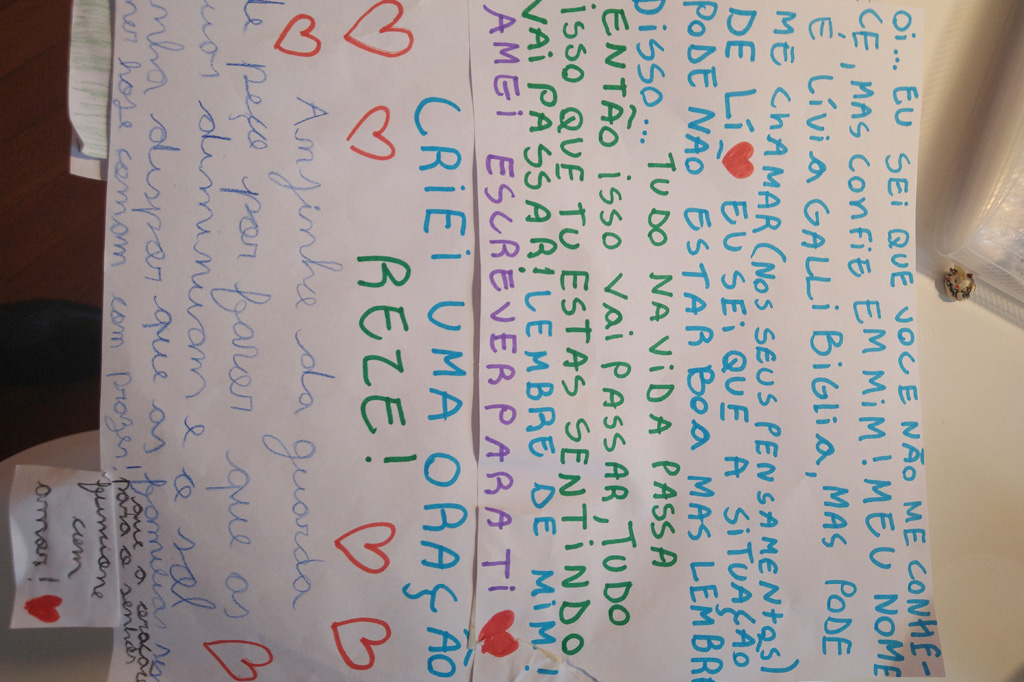 OI... EU SEI QUE VOCE NÃO ME CONHE-
CE, MAS CONFIE EM MIM! MEU NOME
É LÍVIA GALLI BIGLIA, MAS PODE
ME CHAMAR (NOS SEUS PENSAMENTOS)
DE LÍ ❤ EU SEI QUE A SITUAÇÃO
PODE NÃO ESTAR BOA MAS LEMBRE
DISSO... TUDO NA VIDA PASSA
ENTÃO ISSO VAI PASSAR, TUDO
ISSO QUE TU ESTAS SENTINDO
VAI PASSAR! LEMBRE DE MIM!
AMEI ESCREVER PARA TI ❤
CRIEI UMA ORAÇÃO
REZE!
Anjinho da guarda
peço por favor que os
diminuam e o sol
que as
hoje comam com prazer!
que o coração
funcione
com
amor! ❤